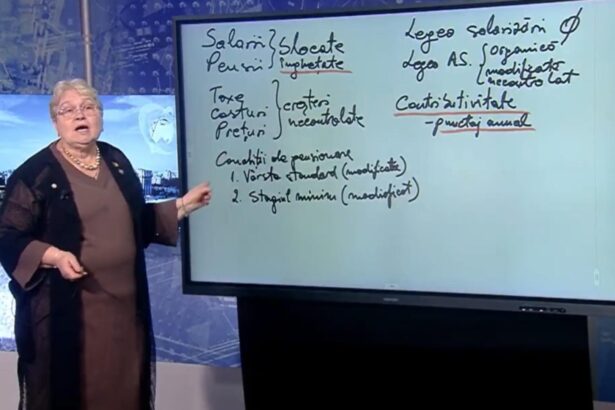 Salarii
Pensii
Blocate
înghețate
Taxe
Costuri
Prețuri
creșteri
necontrolate
Condiții de pensionare
1. Vârsta standard (modificată)
2. Stagiul minim (modificat)
Legea salarizării Ø
Legea A.S.
organică
modificată
necontrolat
Contributivitate
- punctaj annual